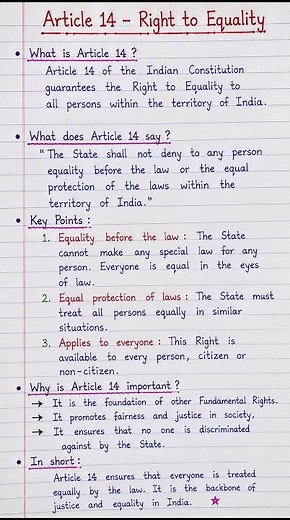 Article 14 – Right to Equality
• What is Article 14 ?
Article 14 of the Indian Constitution
guarantees the Right to Equality to
all persons within the territory of India.
• What does Article 14 say ?
"The State shall not deny to any person
equality before the law or the equal
protection of the laws within the
territory of India."
• Key Points :
1. Equality before the law : The State
cannot make any special law for any
person. Everyone is equal in the eyes
of law.
2. Equal protection of laws : The State must
treat all persons equally in similar
situations.
3. Applies to everyone : This Right is
available to every person, citizen or
non-citizen.
• Why is Article 14 important ?
→ It is the foundation of other Fundamental Rights.
→ It promotes fairness and justice in society,
→ It ensures that no one is discriminated
against by the State.
• In short :
Article 14 ensures that everyone is treated
equally by the law. It is the backbone of
justice and equality in India. ★